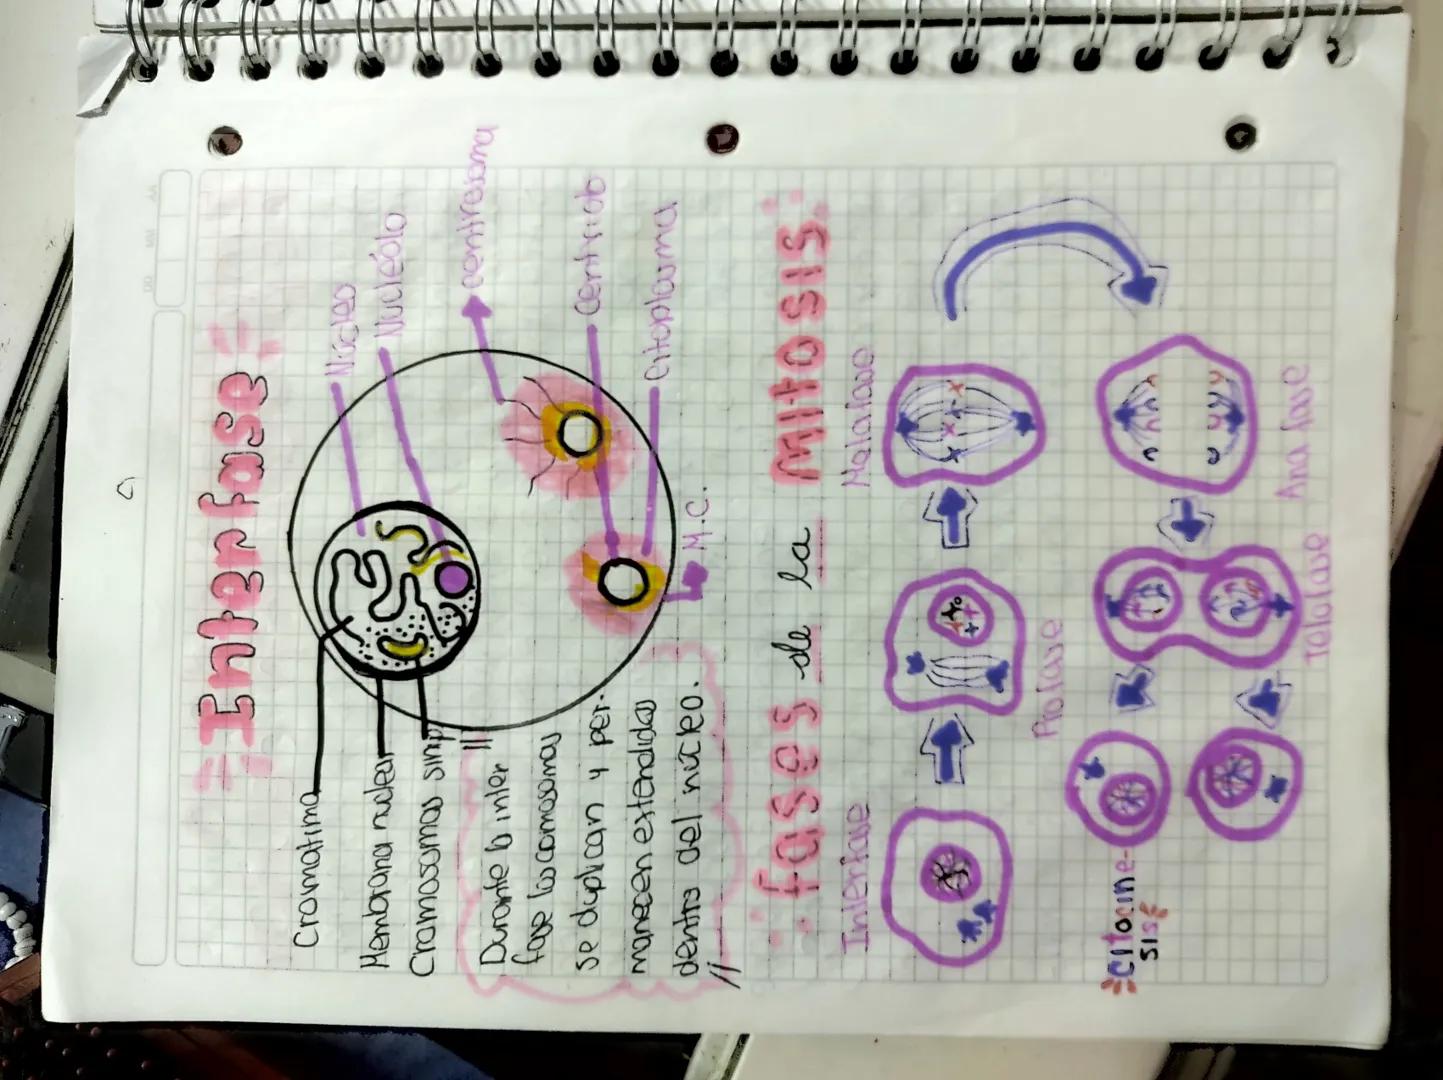 Interfase
Núcleo
Nucléolo
centrosoma
Centriolo
Citoplasma
M.C.
Cromatima
Membrana nuclear
Cromosomas simp
Durante la inter
fase los comosomas
se duplican y per-
manecen extendidos
dentro del núcleo.
fases de la MItosIs
Interfase
Profase
Metafase
Ana fase
Telofase
citocine-
sis